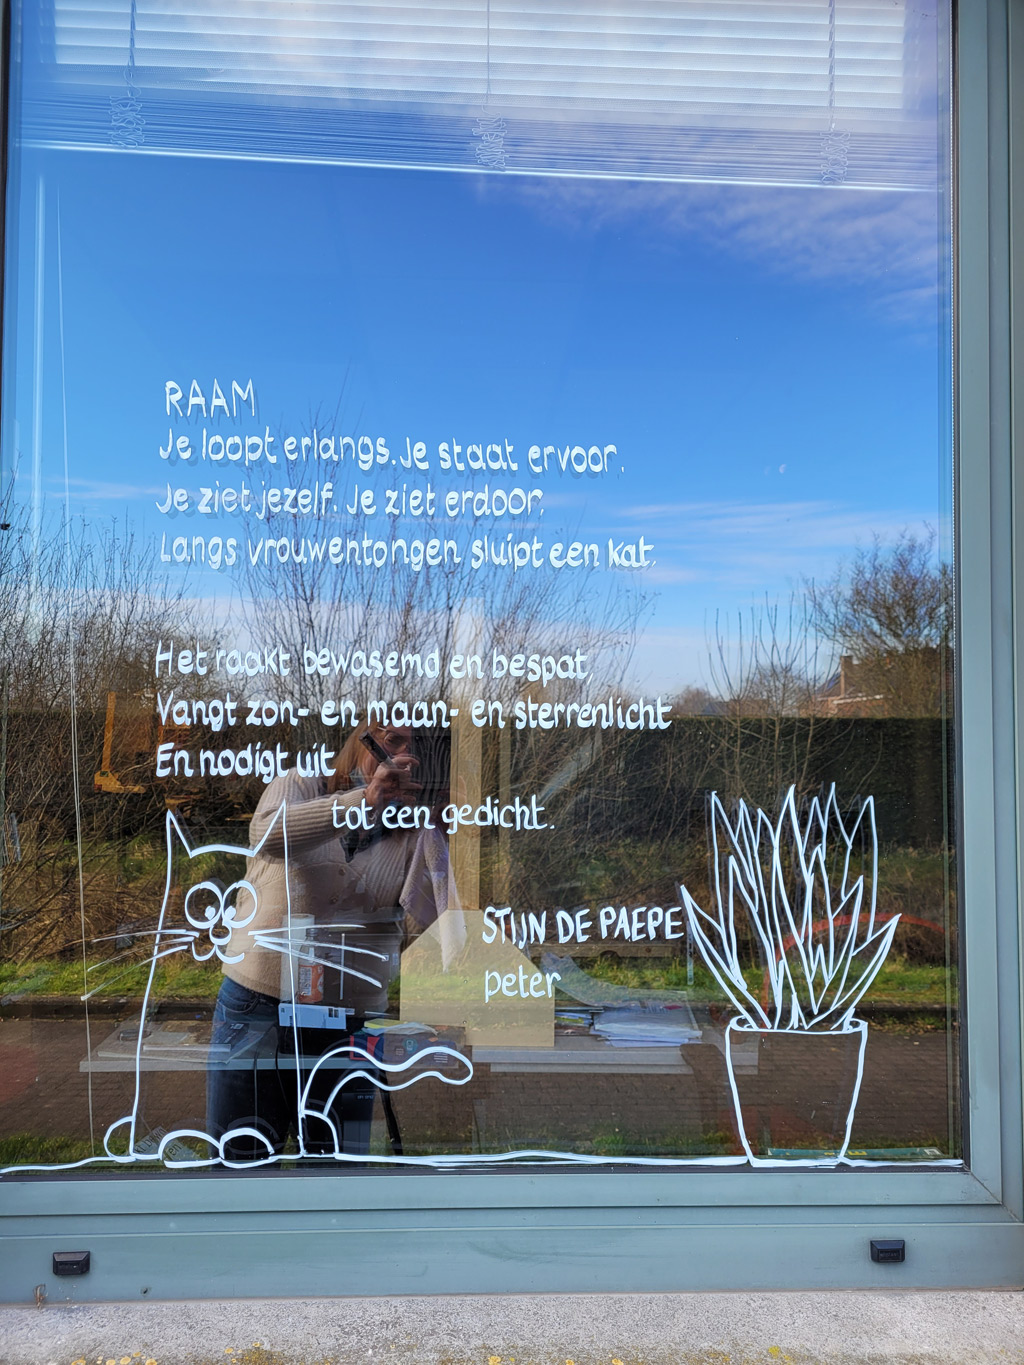 RAAM
Je loopt erlangs. Je staat ervoor.
Je ziet jezelf. Je ziet erdoor.
Langs vrouwentongen sluipt een kat.
Het raakt bewasemd en bespat,
Vangt zon- en maan- en sterrenlicht
En nodigt uit
tot een gedicht.
STIJN DE PAEPE
peter